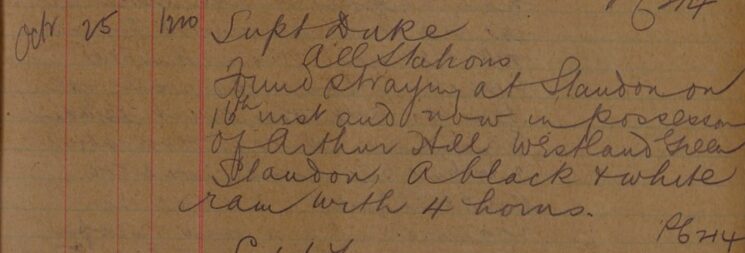 PC 214
Octr 25 1200 Supt Duke
All Stations
Found straying at Standon on
16th inst and now in possession
of Arthur Hill Westland Green
Standon, A black & white
ram with 4 horns.
PC 214